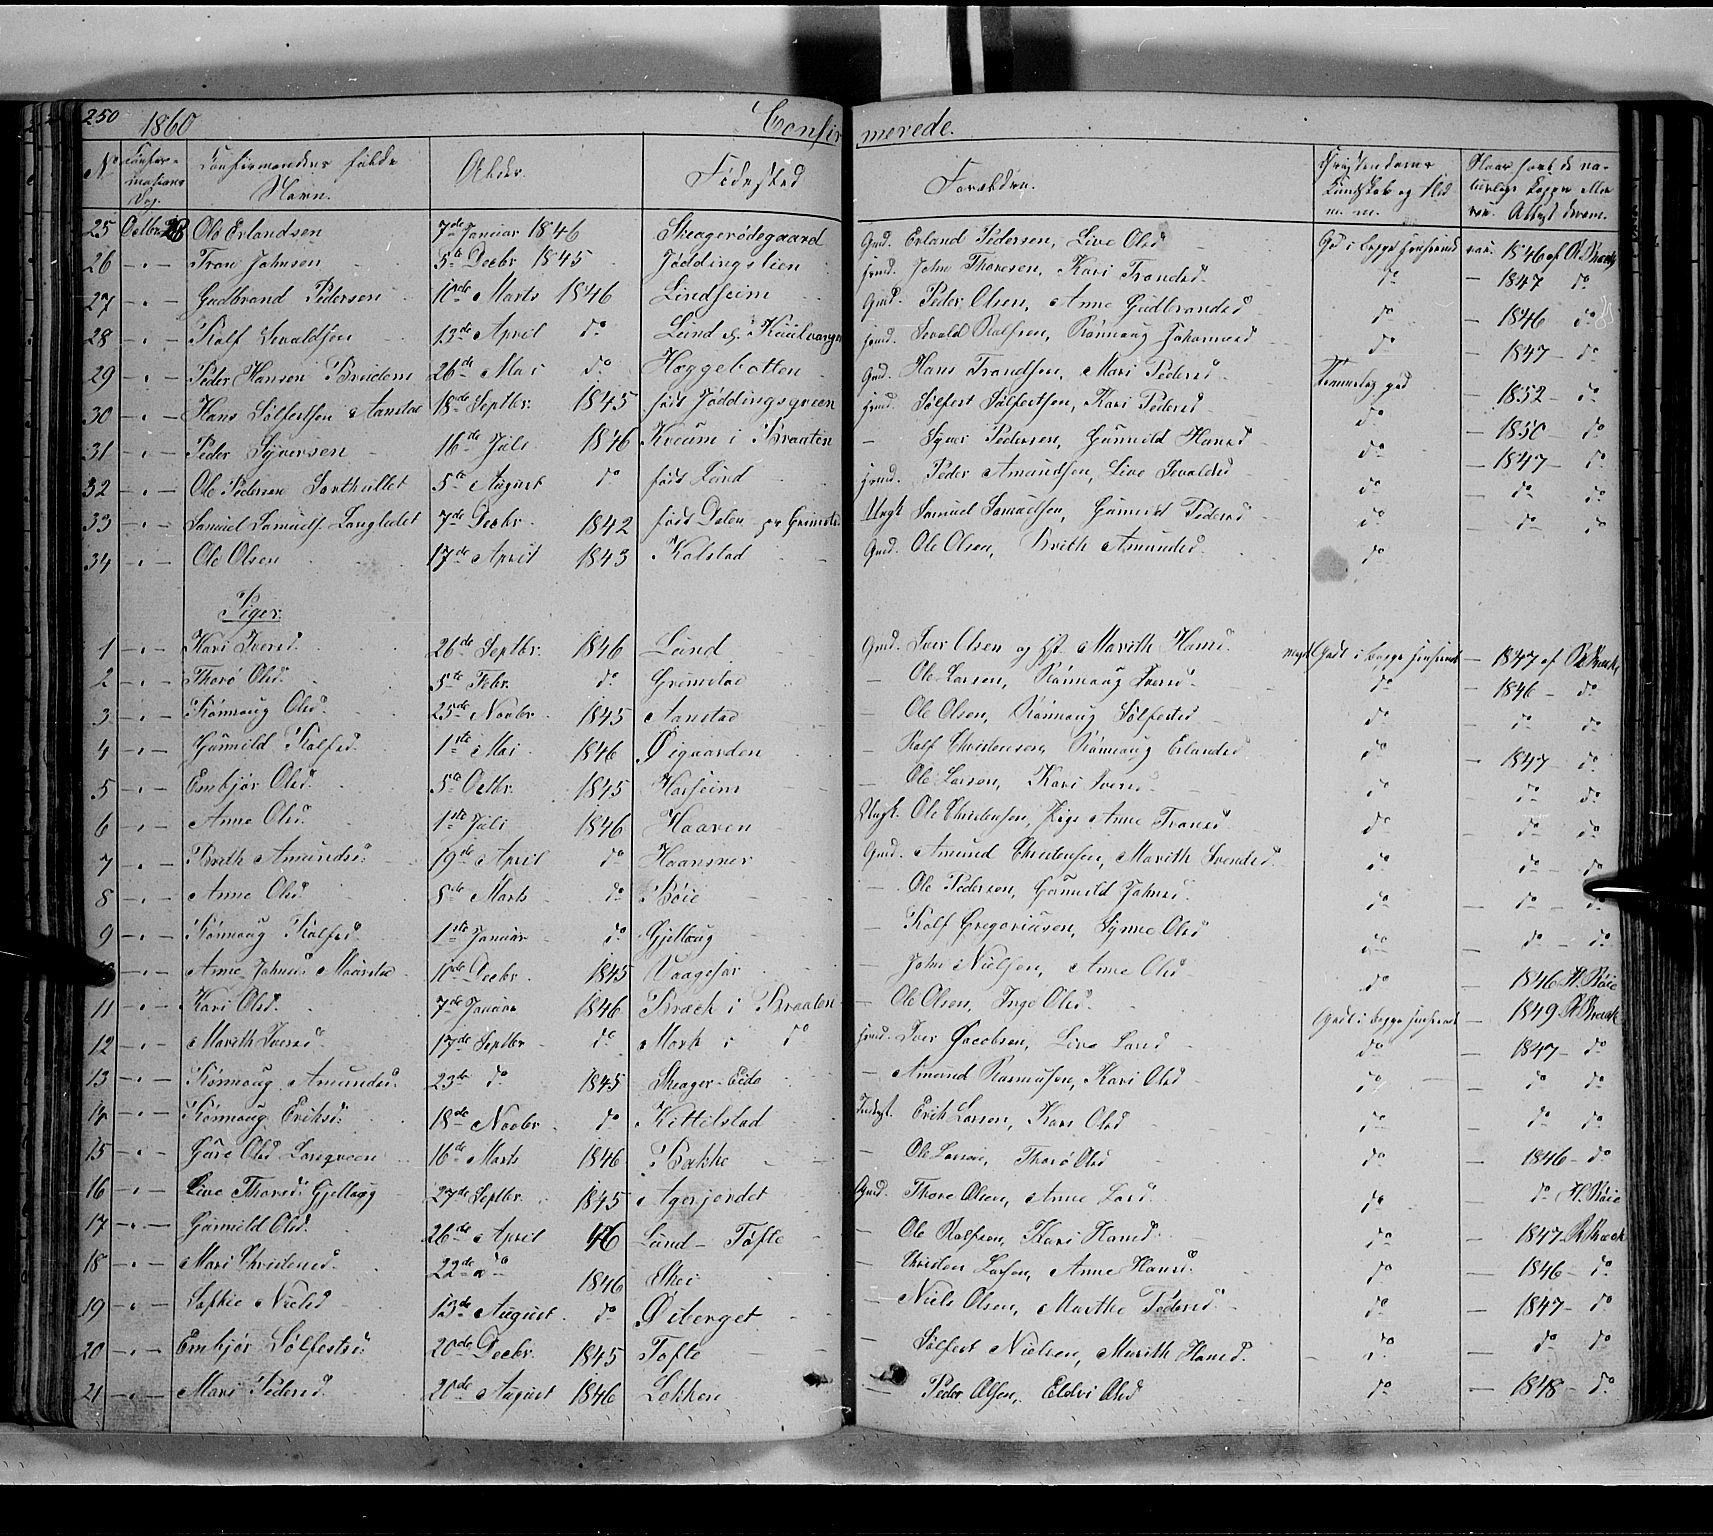 250 1860 Confirmerede.
No Confirmations Dag. Confirmandens fulde Navn. Alder. Fødested Forældre. Christendoms Kundskab og Flid m. m. Naar havt de naturlige Kopper eller vac. Attest derom.
25 Octbr 28 Ole Erlandsen 7de Januar 1846 Skeagerødegaard Gmd. Erland Pedersen, Live Olsd Gd i begge Henseende vac. 1846 af R. Braek
26 - " - Tron Johnsen 5te Decbr 1845 Jøddingslien Jnmd. John Thoresen, Kari Trondsd. do - 1847 do
27 - " - Gudbrand Pedersen 10de Marts 1846 Lindseim Gmd. Peder Olsen, Anne Gudbrandsd do - 1846 do
28 - " - Rolf Sevaldsen 13de April do Lund Jnmd. Sevald Rolfsen, Rønnaug Johannesd do - 1847 - do
29 - " - Peder Hansen Bruden 26de Mai do Heggebotten Gmd. Hans Trondsen, Mari Pedersd. Temmelig god - 1852 - do
30 - " - Hans Sølfestsen Aanstad 18de Septbr. 1845 født Jøddingsgreen Jnmd. Sølfest Sølfestsen, Kari Pedersd do - 1850 - do
31 - " - Peder Syversen 16de Juli 1846 Kveum i Braaten - Syver Pedersen, Gunnild Hansd do - 1847 - do
32 - " - Ole Pedersen Sorthullet 5te August do født Lund Jnmd. Peder Amundsen, Live Sevaldsd do - do do
33 - " - Samuel Samuels. Langledet 7de Decbr. 1842 født Dalen Grimstad Ungk Samuel Samuelsen, Gunnild Pedersd do - do do
34 - " - Ole Olsen 17de April 1843 Kolstad Gmd. Ole Olsen, Brith Amundsd. do
Piger.
1 - " - Kari Iversd. 26de Septbr. 1846 Lund Gmd. Iver Olsen og Hst. Marith Hansd meget Godt i begge Henseende - 1847 af R. Braek
2 - " - Thorø Olsd. 5te Febr. do Grimstad - Ole Larsen, Rønnaug Iversd. do - 1846 - do
3 - " - Rønnaug Olsd. 25de Novbr. 1845 Aanstad - Ole Olsen, Rønnaug Sølfestsd do - do do
4 - " - Gunnild Rolfsd. 1ste Mai 1846 Øigaarden - Rolf Christensen, Rønnaug Erlandsd do - 1847 - do
5 - " - Embjør Olsd. 5te Octbr. 1845 Harseim - Ole Larsen, Kari Iversd do - do do
6 - " - Anne Olsd. 1ste Juli 1846 Haaven Ungk. Ole Christensen, Pige Anne Tronsd do - do do
7 - " - Brith Amundsd: 19de April do Haansnar Gmd. Amund Christensen, Marith Svendsd. do - do - do
8 - " - Anne Olsd. 8de Marts do Bøie - Ole Pedersen, Gunnild Johnsd. do - do - do
9 - " - Rønnaug Rolfsd. 1ste Januar do Gjellaug - Rolf Gregoriusen, Synne Olsd do - do - do
Anne Johnsd. Maurstad 10de Decbr. 1845 Vaagesar - John Nielsen, Anne Olsd do - 1846 H. Bøie
11 - " - Kari Olsd. 7de Januar 1846 Braek i Braaten - Ole Olsen, Inge Olsd. Godt i begge Henseende - 1849 R. Braek
12 - " - Marith Iversd 17de Septbr do Mork i do Jnmd. Iver Jacobsen, Live Larsd do - 1847 - do
13 - " - Rønnaug Amundsd. 23de do 1845 Skeager-Eide - Amund Rasmusen, Kari Olsd do - do do
14 - " - Rønnaug Eriksd: 18de Novbr. do Kittilstad Inderst. Erik Larsen, Kari Olsd do - do do
15 - " - Guro Olsd Langveen 16de Marts 1846 Bakke - Ole Larsen, Thorø Olsd do - 1846 - do
16 - " - Live Thoresd: Gjellaug 27de Septbr. 1845 Agerjordet Gmd. Thore Olsen, Anne Larsd. do - do H. Bøie
17 - " - Gunnild Olsd. 26de April 46 Lund - Tofte - Ole Rolfsen, Kari Hansd do - 1847 - R. Braek
18 - " - Mari Christensd. 22de do 1846 Skei - Christen Larsen, Anne Hansd. do - 1846 - do
19 - " - Sophie Nielsd. 13de August. do Øiberget - Niels Olsen, Marthe Pedersd do - 1847 - do
20 - " - Embjør Sølfestsd: 20de Decbr. 1845 Tofte - Sølfest Nielsen, Marith Hansd. do - do do
21 - " - Mari Pedersd. 20de August 1846 Løkken - Peder Olsen, Eldri Olsd do - 1848 - do